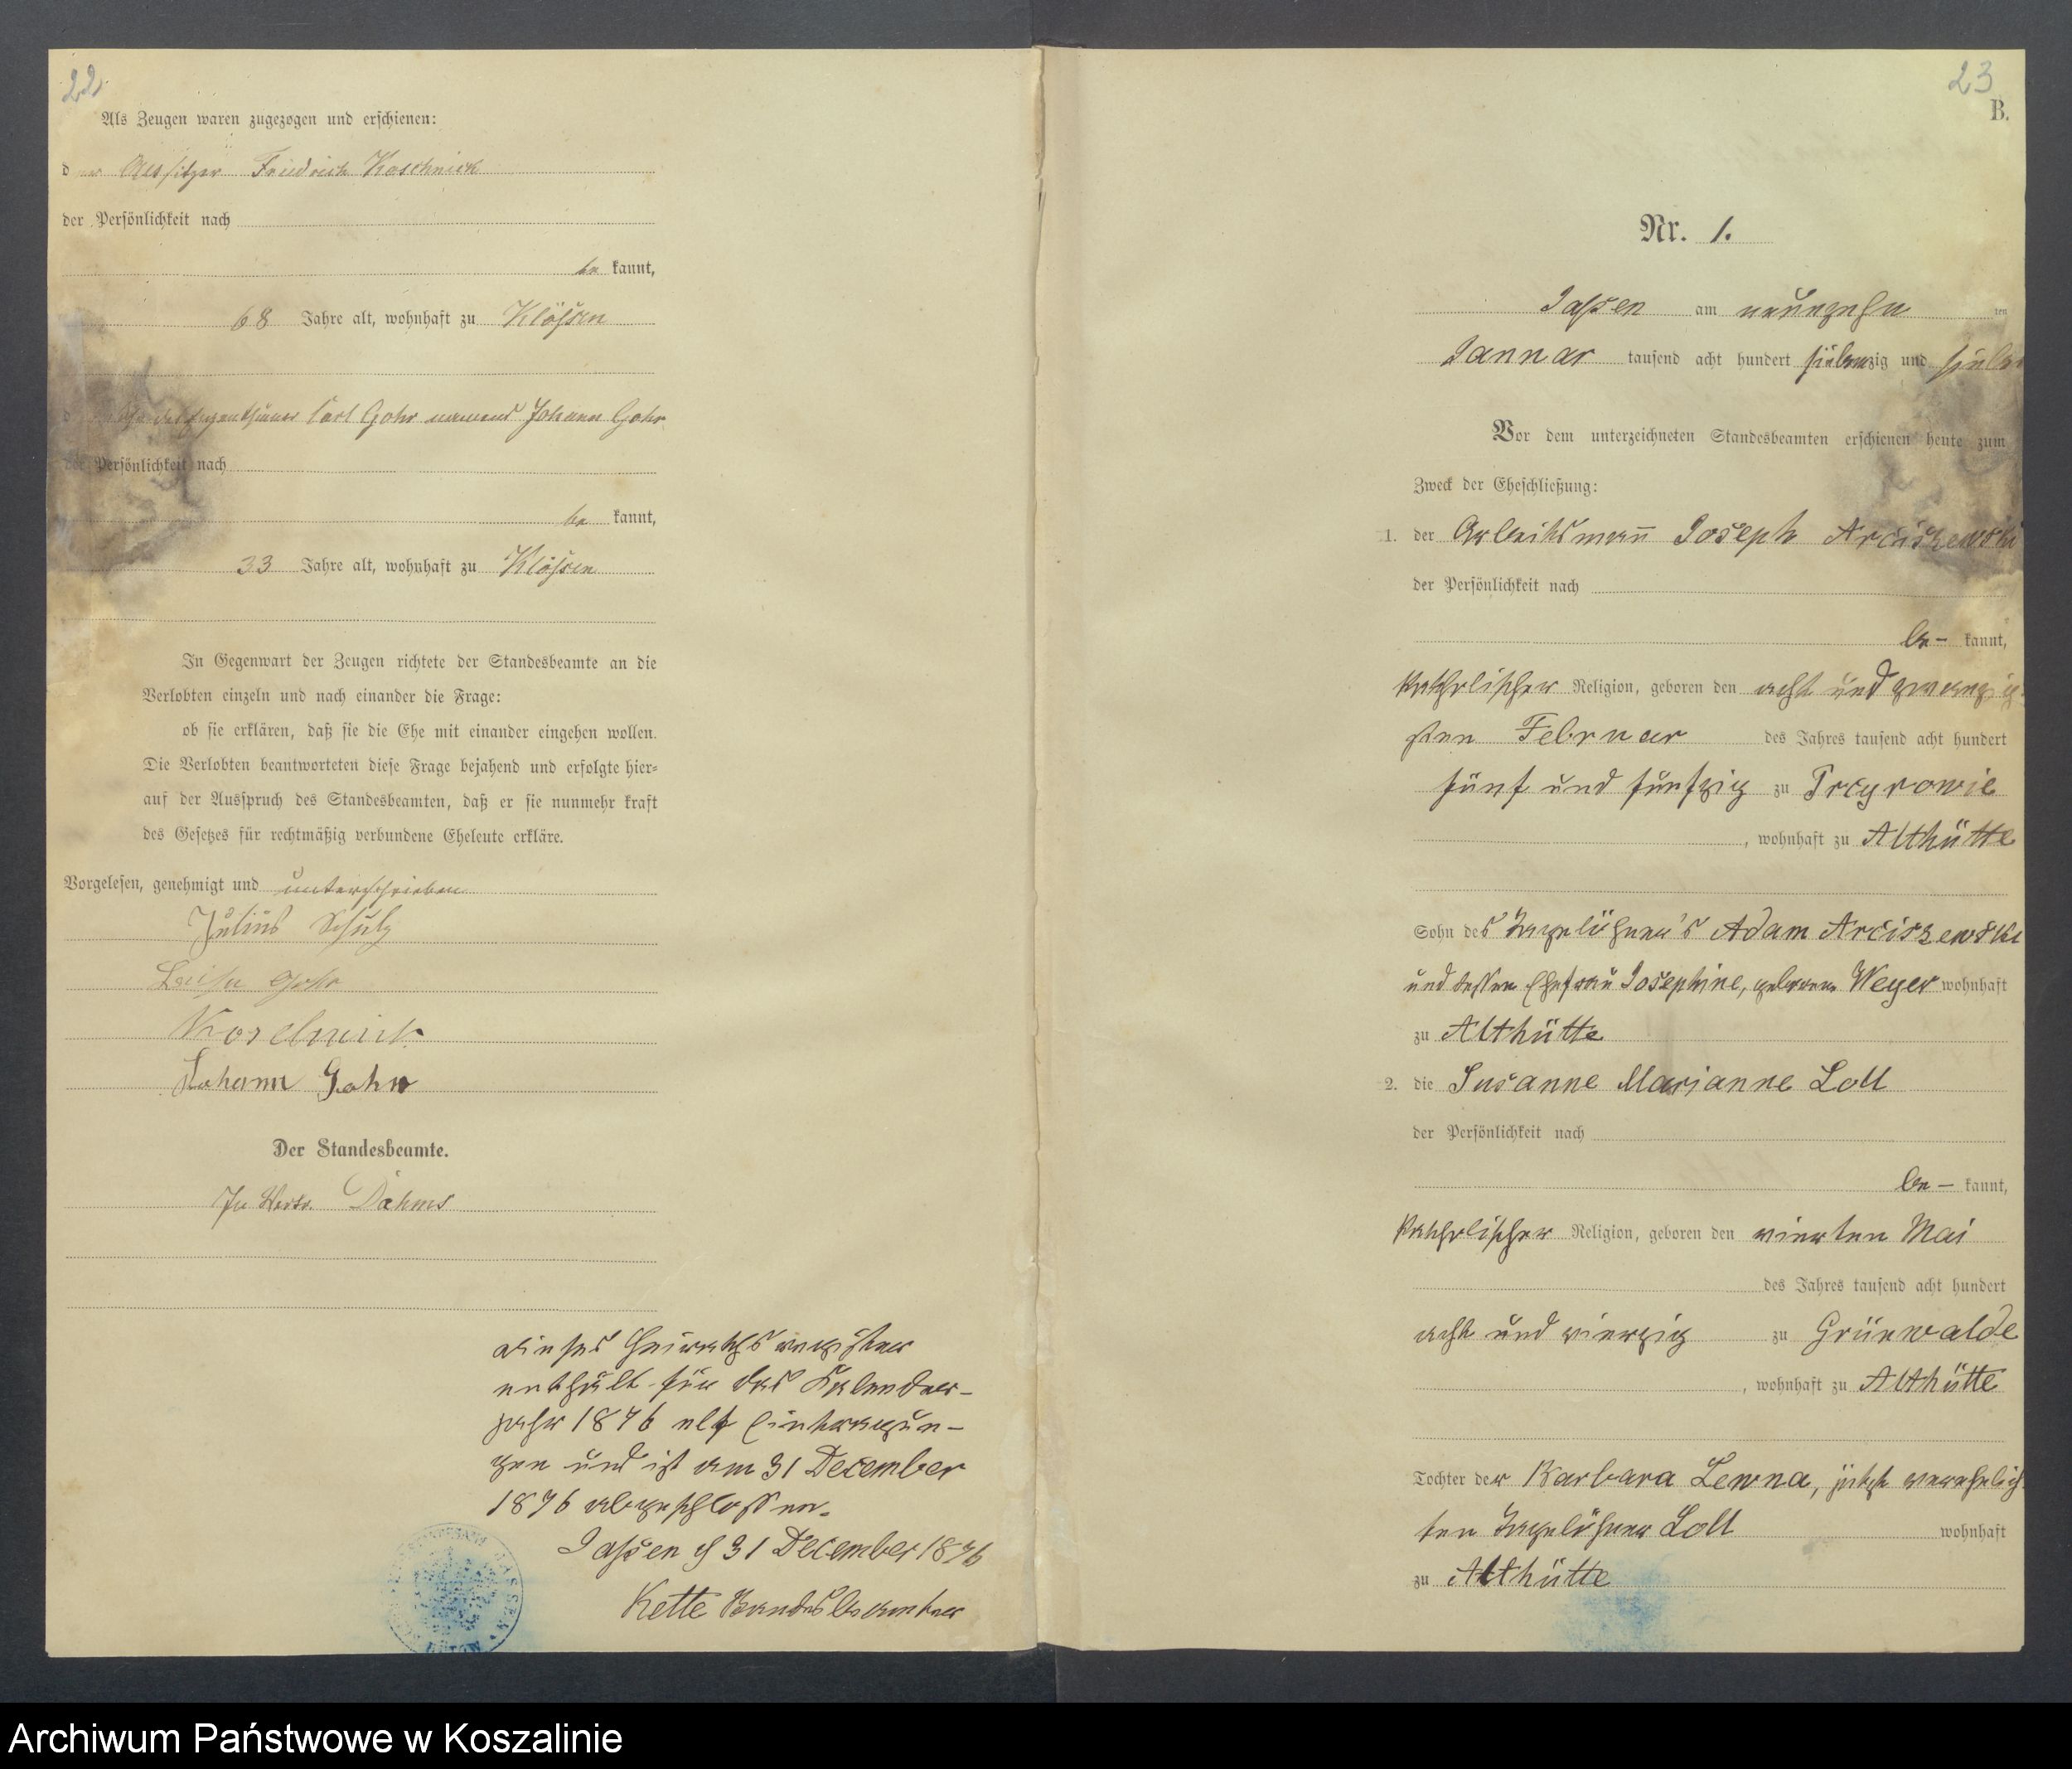 22
Als Zeugen waren zugezogen und erschienen:
d er Altsitzer Friedrich Koschnick
der Persönlichkeit nach
be kannt,
68 Jahre alt, wohnhaft zu Klößen
Carl Gohr Johann Gohr
der Persönlichkeit nach
be kannt,
33 Jahre alt, wohnhaft zu Klößen
In Gegenwart der Zeugen richtete der Standesbeamte an die
Verlobten einzeln und nach einander die Frage:
ob sie erklären, daß sie die Ehe mit einander eingehen wollen.
Die Verlobten beantworteten diese Frage bejahend und erfolgte hier-
auf der Ausspruch des Standesbeamten, daß er sie nunmehr kraft
des Gesetzes für rechtmäßig verbundene Eheleute erkläre.
Vorgelesen, genehmigt und unterschrieben
Julius Schulz
Luise Gohr
Koschnick
Johann Gohr
Der Standesbeamte.
In Vertr. Dahms
Dieses Heirathsregister
enthält für das Kalender-
jahr 1876 elf Eintragun-
gen und ist am 31 December
1876 abgeschlossen.
Jassen 31 December 1876
Kette Standesbeamter
23
B.
Nr. 1.
Jassen am neunzehn ten
Januar tausend acht hundert siebenzig und sieben
Vor dem unterzeichneten Standesbeamten erschienen heute zum
Zweck der Eheschließung:
1. der Arbeitsmann Joseph Arciszewski
der Persönlichkeit nach
be- kannt,
katholischer Religion, geboren den acht und zwanzig-
sten Februar des Jahres tausend acht hundert
fünf und funfzig zu
, wohnhaft zu Althütte
Sohn des Tagelöhner's Adam Arciszewski
und dessen Ehefrau Josephine, geborene Weyer wohnhaft
zu Althütte
2. die Susanne Marianne Loll
der Persönlichkeit nach
be- kannt,
katholischer Religion, geboren den vierten Mai
des Jahres tausend acht hundert
acht und vierzig zu Grünwalde
, wohnhaft zu Althütte
Tochter der Barbara Lewna, jetzt verehelich-
ten Tagelöhner Loll wohnhaft
zu Althütte
Archiwum Państwowe w Koszalinie